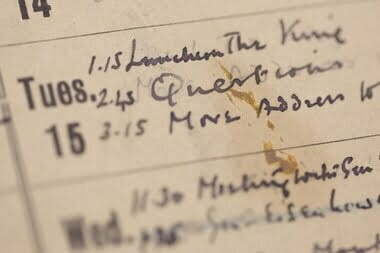 14
1.15 Luncheon The King
Tues. 2.45 Questions
15 3.15 Move Address to
11 30 Meeting with Gen
Wed. Gen Eisenhower